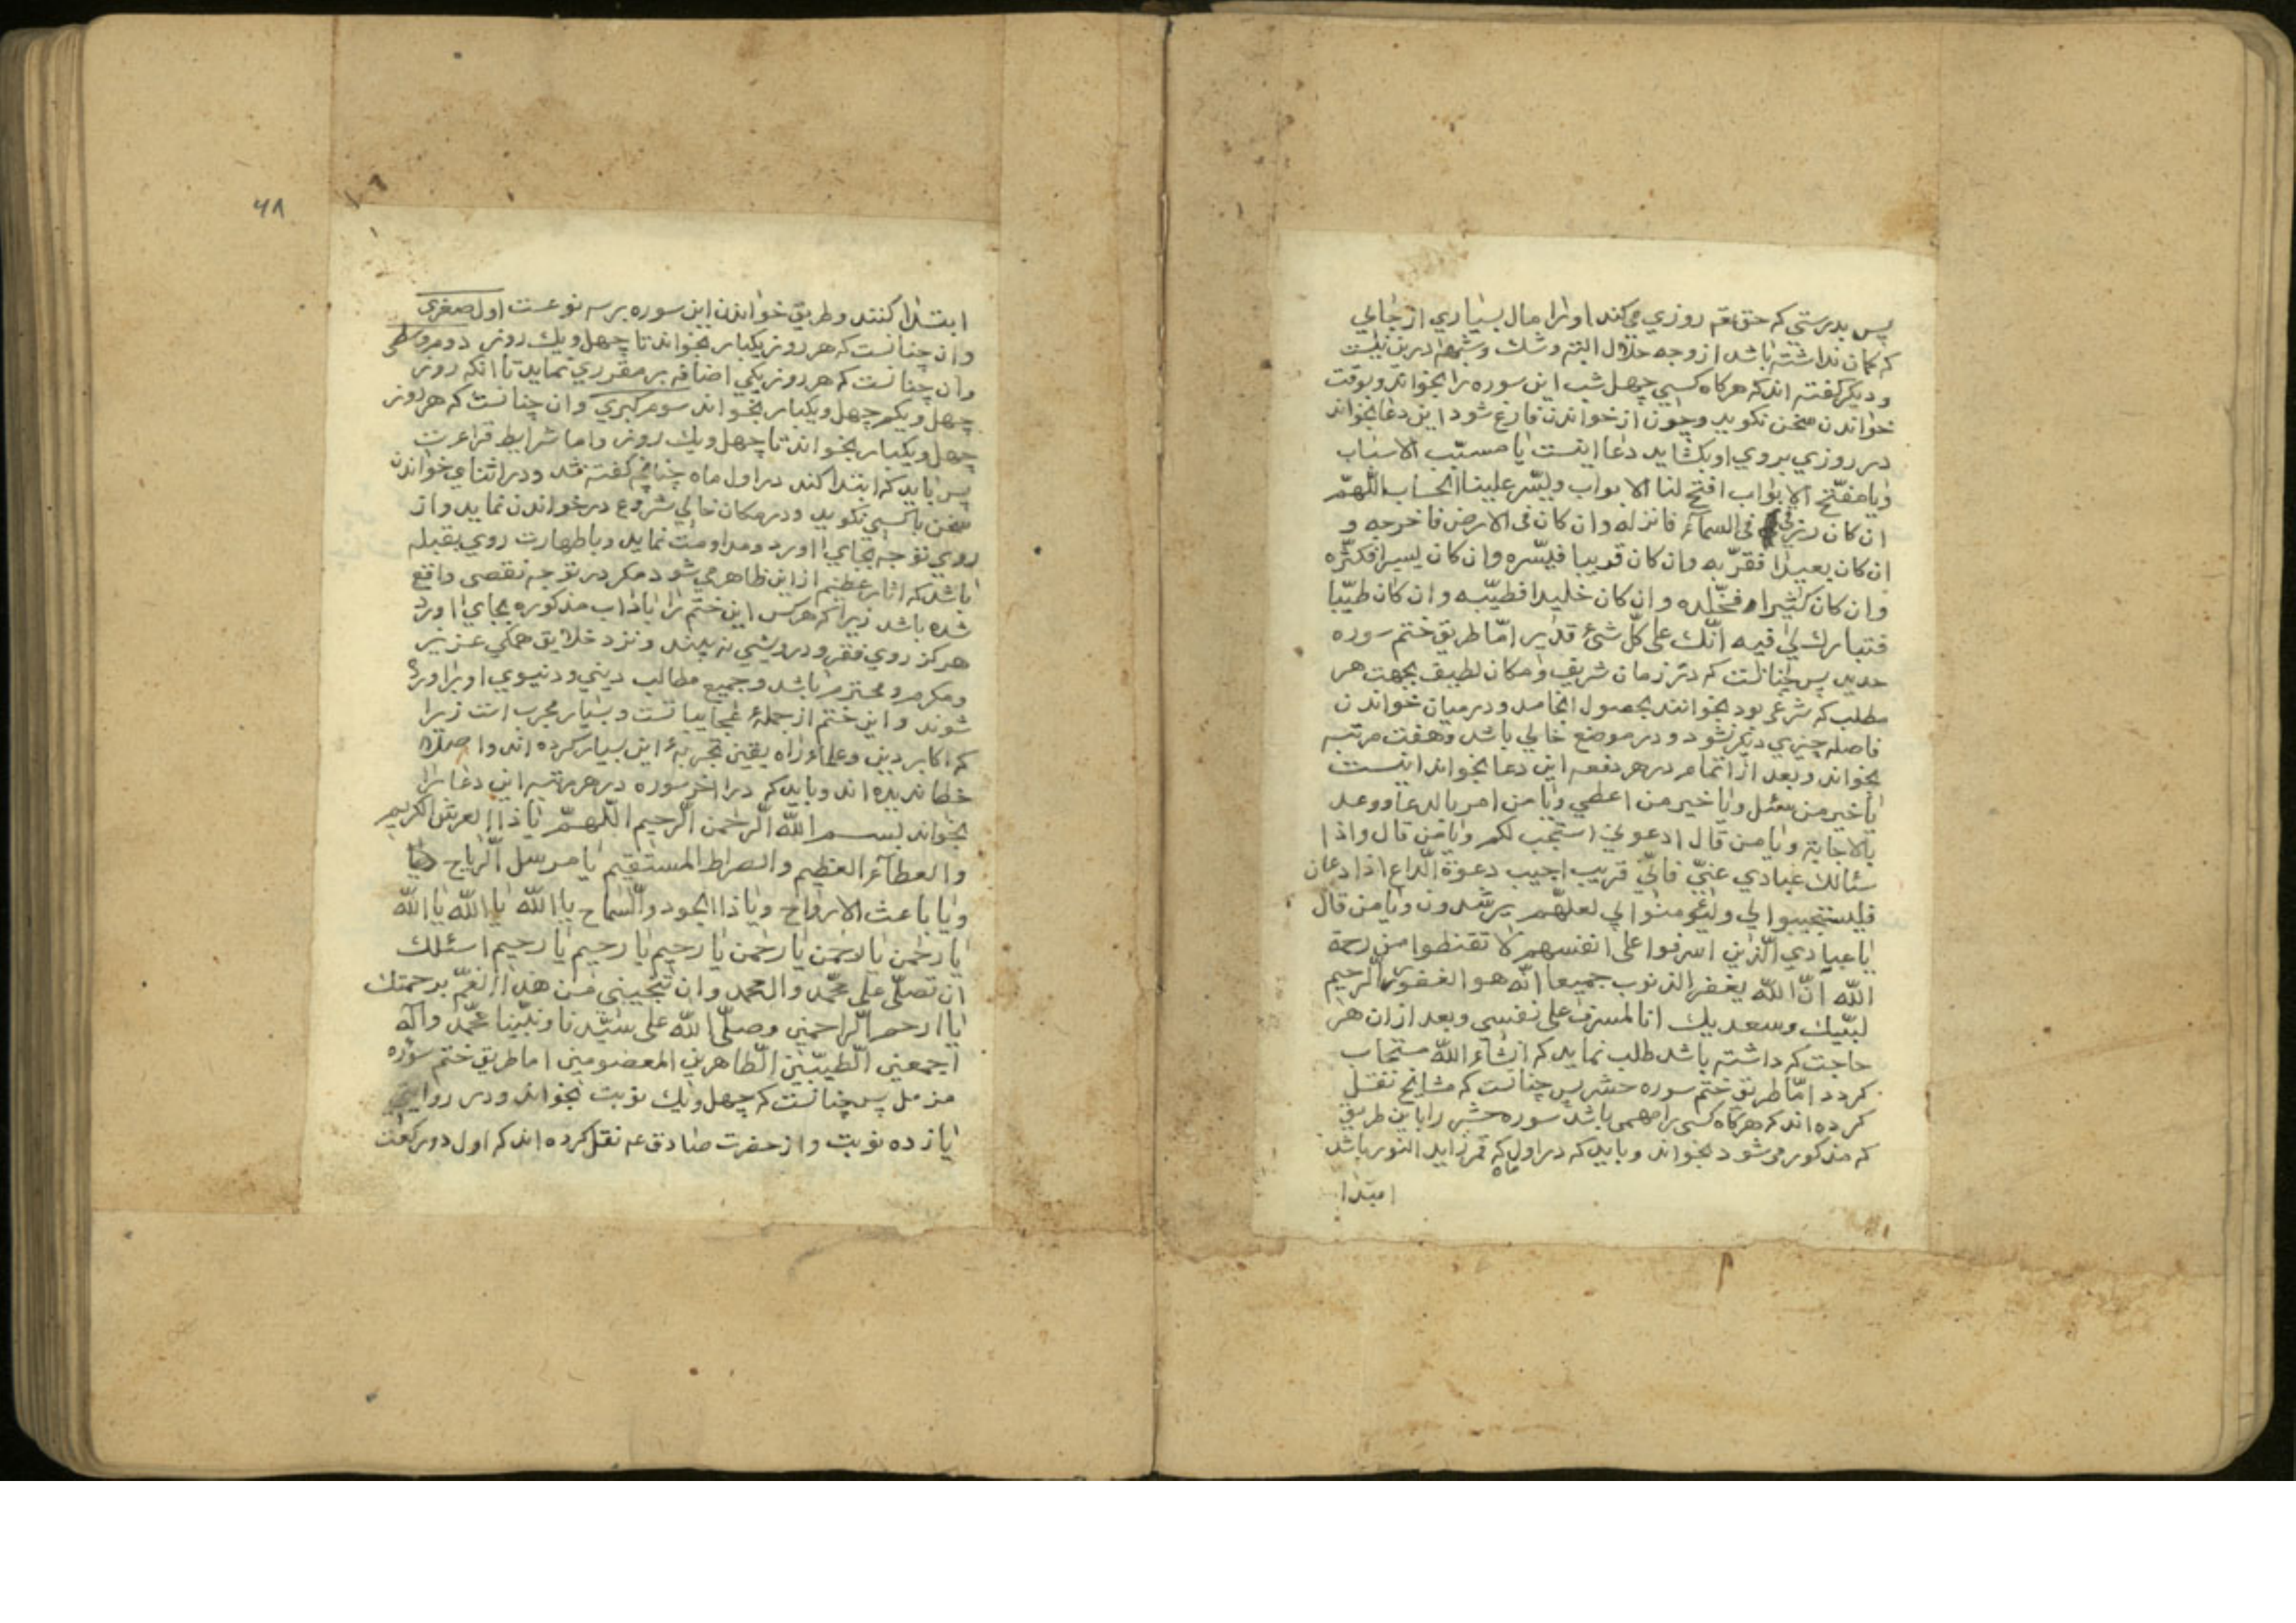 پس بدرستي که حق تعم روزي مي‌کند اورا مال بسياري از جائي
که کمان نداشته باشد از وجه حلال البته و شک و شبهه درين نيست
و ديگر گفته اند که هرکاه کسي چهل شب اين سوره را بخواند و بوقت
خواندن سخن نکويد و چون از خواندن فارغ شود اين دعا بخواند
در روزي بروي او بکشايد دعا اينست يا مسبّب الاسباب
ويا مفتّح الابواب افتح لنا الابواب ويسّر علينا الحساب اللّهمّ
ان کان رزقي في السمآء فانزله وان کان في الارض فاخرجه و
ان کان بعيدا فقرّبه وان کان قريبا فيسّره وان کان يسيرا فکثّره
وان کان کثيرا فخلّده وان کان خليدا فطيّبه وان کان طيّبا
فتبارك لي فيه انّك على کلّ شئ قدير امّا طريق ختم سوره
حديد پس چنانست که در زمان شريف و مکان لطيف بجهت هر
مطلب که شرعي بود بخوانند بحصول انجامد و درميان خواندن
فاصله چيزي ديکر نشود و در موضع خالي باشد و هفت مرتبه
بخواند و بعد از اتمام در هر دفعه اين دعا بخواند اينست
يا خير من سئل ويا خير من اعطي ويا من امر بالدعا ووعد
بالاجابة ويا من قال ادعوني استجب لکم ويا من قال واذا
سئالك عبادي عنّي فانّي قريب اجيب دعوة الدّاع اذا دعان
فليستجيبوا لي وليؤمنوا بي لعلّهم يرشدون ويا من قال
يا عبادي الّذين اسرفوا على انفسهم لا تقنطوا من رحمة
اللّه انّ اللّه يغفر الذنوب جميعا انّه هو الغفور الرّحيم
لبّيك وسعديك انا المسرف على نفسي وبعد ازان هر
حاجت که داشته باشد طلب نمايد که انشاء اللّه مستجاب
کردد امّا طريق ختم سوره حشر پس چنانست که مشايخ نقل
کرده اند که هرکاه کسي را مهمي باشد سوره حشر را باين طريق
که مذکور مي‌شود بخواند و بايد که در اول ماه که قمر زايد النور باشد
ابتدا
٤٨
ابتدا کنند و طريق خواندن اين سوره بر سه نوعست اول صغري
وان چنانست که هر روز يکبار بخواند تا چهل ويك روز دوم وسطي
وان چنانست که هر روز يکي اضافه بر مقرري نمايد تا انکه روز
چهل ويکم چهل ويکبار بخواند سوم کبري وان چنانست که هر روز
چهل ويکبار بخواند تا چهل ويك روز واما شرايط قراءت
پس بايد که ابتدا کند در اول ماه چنانچه گفته شد و در اثناي خواندن
سخن با کسي نکويد و در مکان خالي شروع در خواندن نمايد واز
روي توجه بجاي اورد ومداومت نمايد وباطهارت روي بقبله
باشد که اثار عظيم از اين ظاهر مي‌شود مکر در توجه نقصي واقع
شده باشد زيرا که هر کس اين ختم را با اداب مذکوره بجاي اورد
هرکز روي فقر و درويشي نه بيند و نزد خلايق همکي عزيز
و مکرم و محترم باشد و جميع مطالب ديني و دنيوي او براورده
شوند و اين ختم از جملهٔ عجايباتست و بسيار مجرب است زيرا
که اکابر دين وعلماء راه يقين تجربهٔ اين بسيار کرده اند واصلا
خطا نديده اند وبايد که در اخر سوره در هر مرتبه اين دعا را
بخواند بسم اللّه الرّحمن الرّحيم اللّهمّ يا ذا العرش الکريم
والعطآء العظيم والصراط المستقيم يا مرسل الرّياح
ويا باعث الارواح ويا ذا الجود والسّماح يا اللّه يا اللّه يا اللّه
يا رحمن يا رحمن يا رحمن يا رحيم يا رحيم يا رحيم اسئلك
ان تصلّي على محمّد وال محمد وان تنجيني من هذا الغمّ برحمتك
يا ارحم الرّاحمين وصلّى اللّه على سيّدنا ونبيّنا محمّد وآله
اجمعين الطّيبّين الطّاهرين المعصومين اما طريق ختم سوره
مزمل پس چنانست که چهل ويك نوبت بخواند و در روايتي
يازده نوبت واز حضرت صادق عم نقل کرده اند که اول دو رکعت